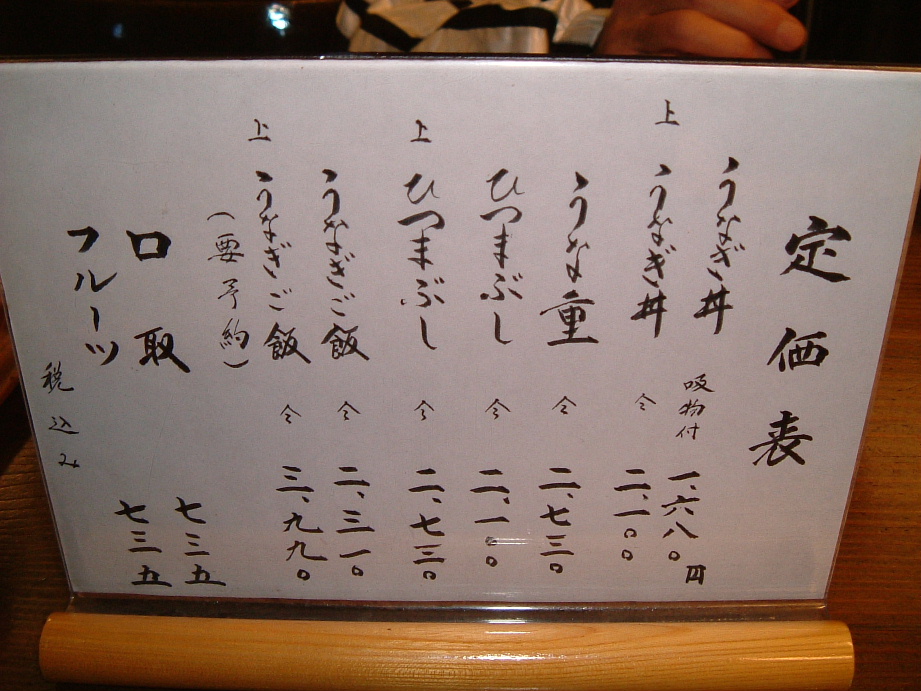 定価表
うなぎ丼 吸物付 一、六八〇円
上 うなぎ丼 仝 二、一〇〇
うな重 仝 二、七三〇
ひつまぶし 仝 二、一〇〇
上 ひつまぶし 仝 二、七三〇
うなぎご飯 仝 二、三一〇
上 うなぎご飯 仝 三、九九〇
(要予約)
口取 七三五
フルーツ 七三五
税込み